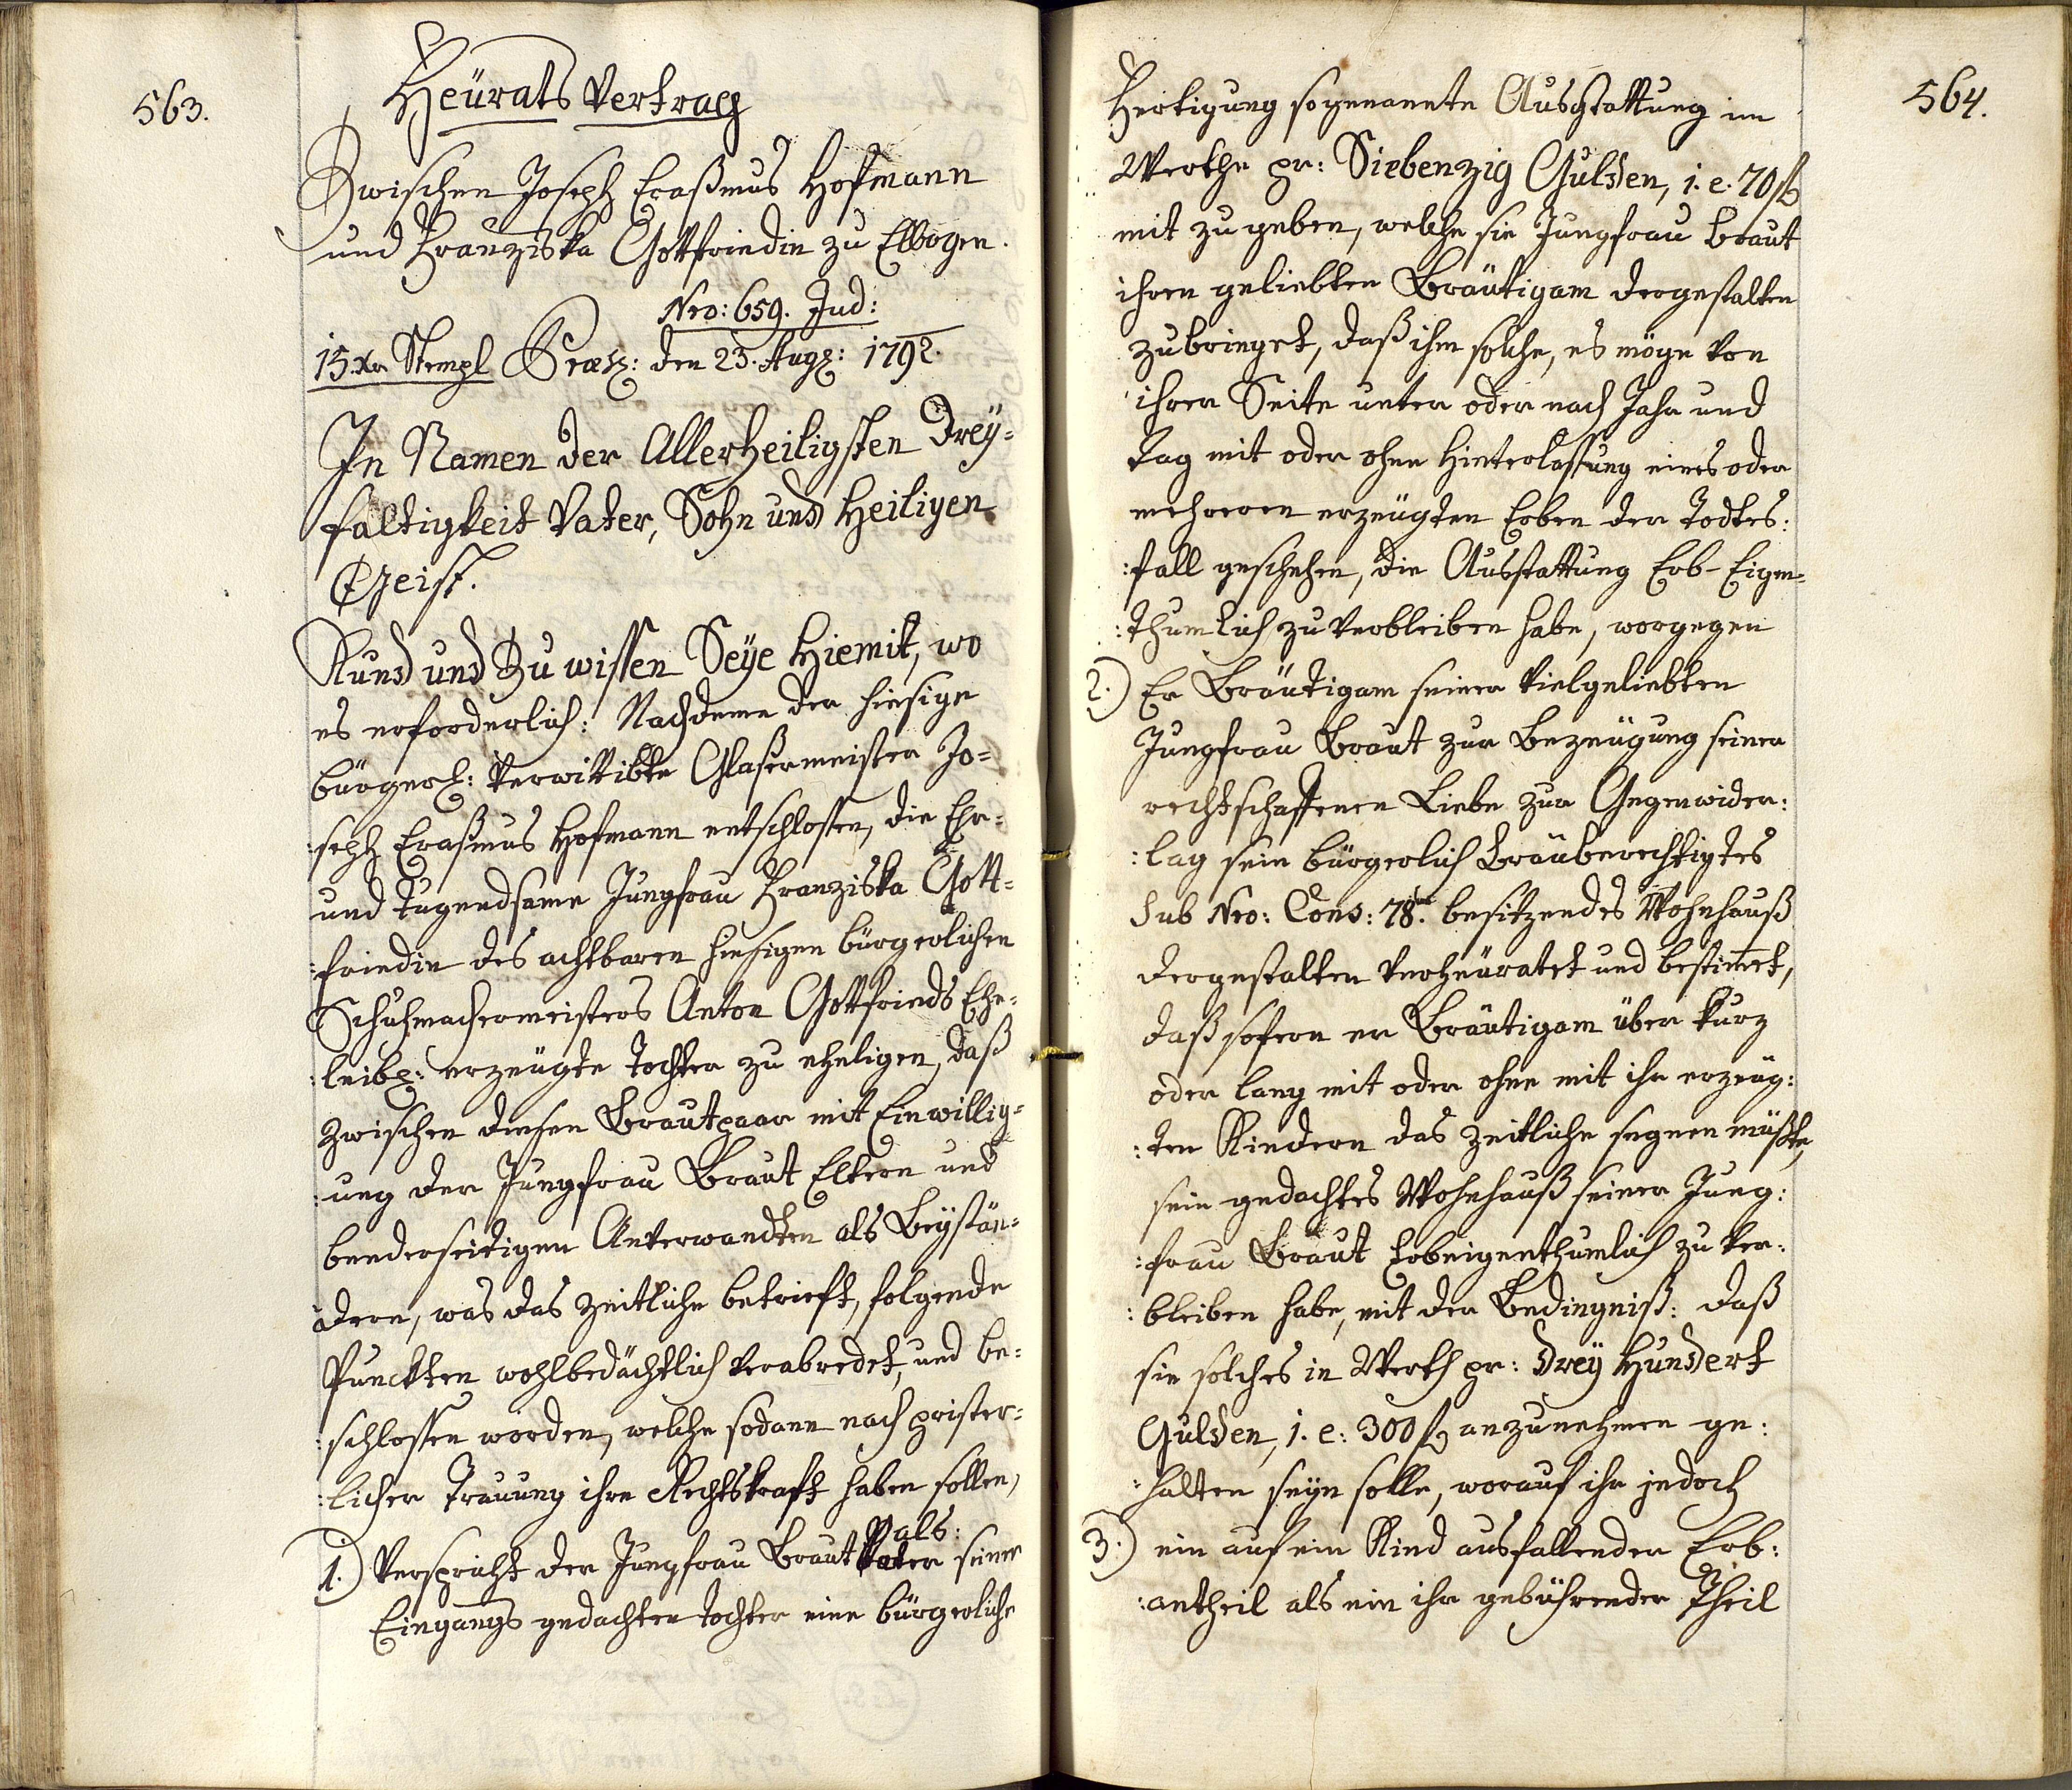 563.
Heürats Vertrag
Zwischen Joseph Eraßmus Hoffmann
und Franziska Gottfriedin zu Elbogen.
Nro: 659. Jud:
15.Xr Stempl Præs: den 23. Aug: 1792.
In Namen der Allerheiligsten Drey=
faltigkeit Vater, Sohn und Heiligen
Geist.
Kund und Zu wissen Seye Hiemit, wo
es erforderlich: Nachdeme der hiesige
bürgerl: verwittibte Glasermeister Jo=
:seph Eraßmus Hofmann entschlossen, die Ehr=
und tugendsame Jungfrau Franziska Gott=
:friedin des achtbaren hiesigen bürgerlichen
Schuhmachermeisters Anton Gottfrieds Ehe=
:leibl: erzeugte Tochter zu eheligen, daß
zwischen diesen Brautpaar mit Einwillig=
:ung der Jungfrau Braut Eltern und
beederseitigen Anverwandten als Beystän=
:dern, was das Zeitliche betrieft, folgende
Punckten wohlbedächtlich verabredet, und be=
:schlossen worden, welche sodann nach prister=
:licher Trauung ihre Rechtskraft haben sollen,
als:
1.) Verspricht der Jungfrau Braut Vater seiner
Eingangs gedachten Tochter eine bürgerliche
564.
Fertigung sogenannte Ausstattung im
Werthe pr: Siebenzig Gulden, i. e. 70 f
mit zu geben, welche sie Jungfrau Braut
ihren geliebten Bräutigam dergestalten
zubringet, daß ihm solche, es möge von
ihrer Seite unter oder nach Jahr und
Tag mit oder ohne Hinterlassung eines oder
mehreren erzeugten Erben der Todtes:
:fall geschehen, die Ausstattung Erb-Eigen=
:thumlich zu verbleiben habe, worgegen
2.) Er Bräutigam seiner vielgeliebten
Jungfrau Braut zur Bezeugung seiner
rechtschaffenen Liebe zur Gegenwider:
:lag sein bürgerlich Bräuberechtigtes
Sub Nro: Cons: 78. besitzendes Wohnhauß
dergestalten verheuratet und bestimmet,
daß sofern er Bräutigam über kurz
oder lang mit oder ohne mit ihr erzeug:
:ten Kindern das Zeitliche segnen müßte,
sein gedachtes Wohnhauß seiner Jung:
:frau Braut Erbeigenthumlich zu ver:
:bleiben habe, mit der Bedingniß: daß
sie solches in Werth pr: Drey Hundert
Gulden, i. e: 300 f anzunehmen ge:
:halten seyn solle, worauf ihr jedoch
3.) ein auf ein Kind ausfallender Erb:
:antheil als ein ihr gebührender Theil